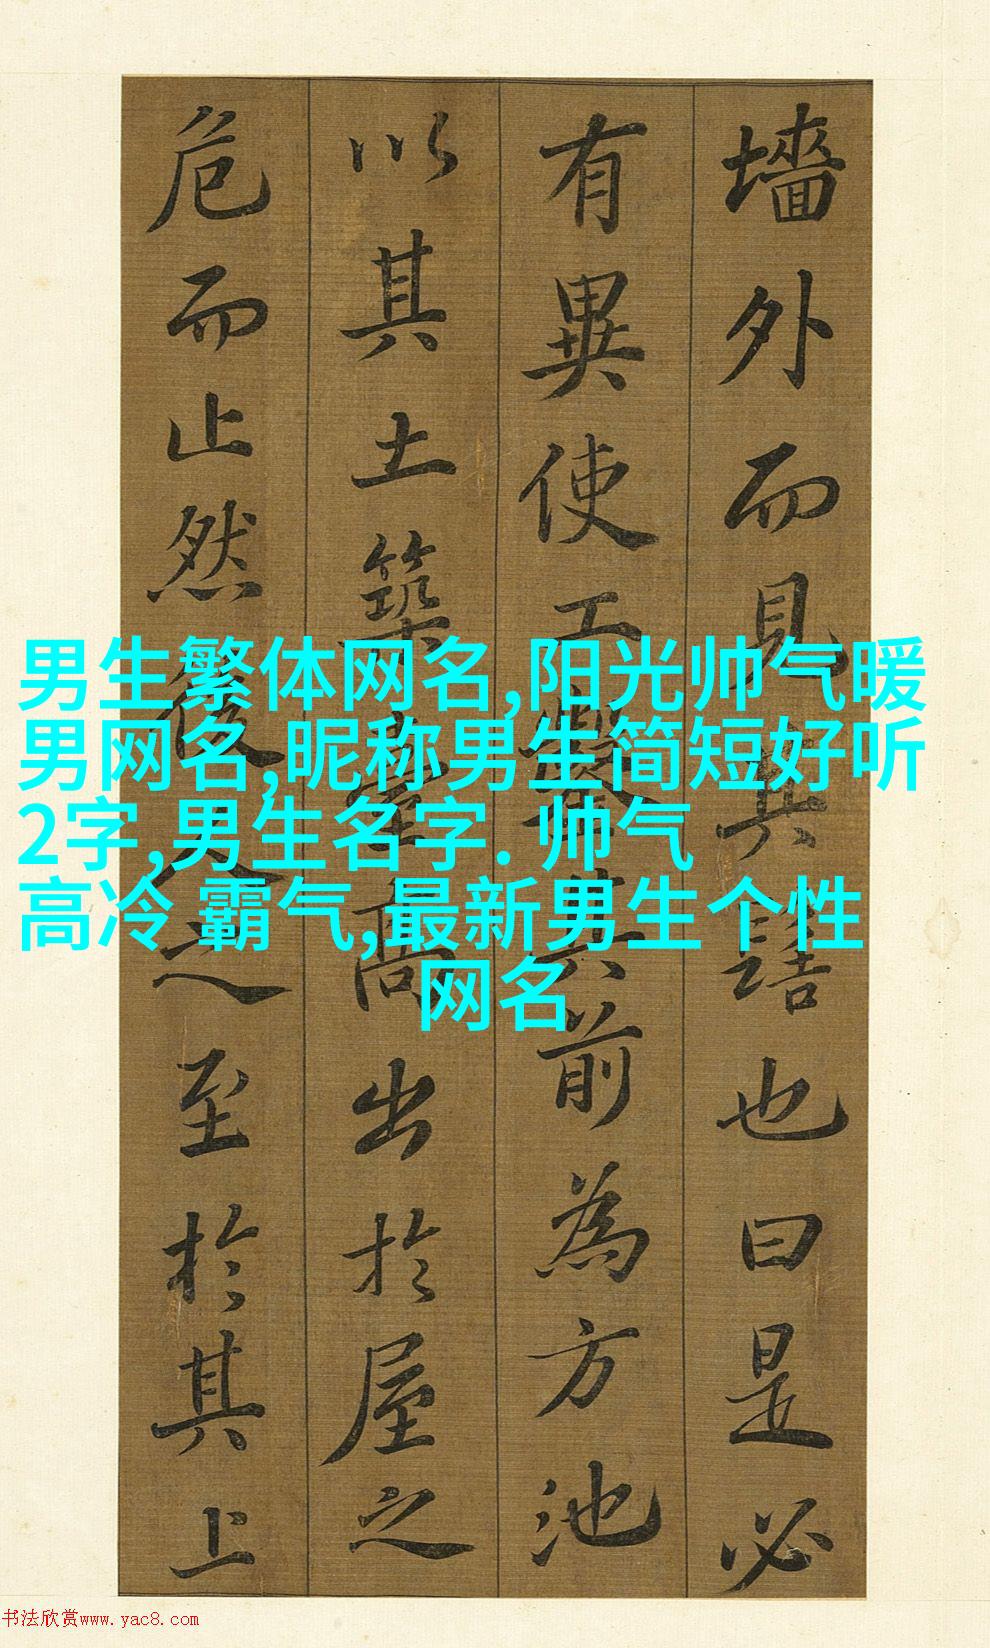 墻外而見其髻也曰是必
有異使工鑿其前為方池
以其土築臺高出於屋之
危而止然後人之至於其上
男生繁体网名,阳光帅气暖
男网名,昵称男生简短好听
2字,男生名字. 帅气
高冷 霸气,最新男生个性
网名
书法欣赏www.yac8.com